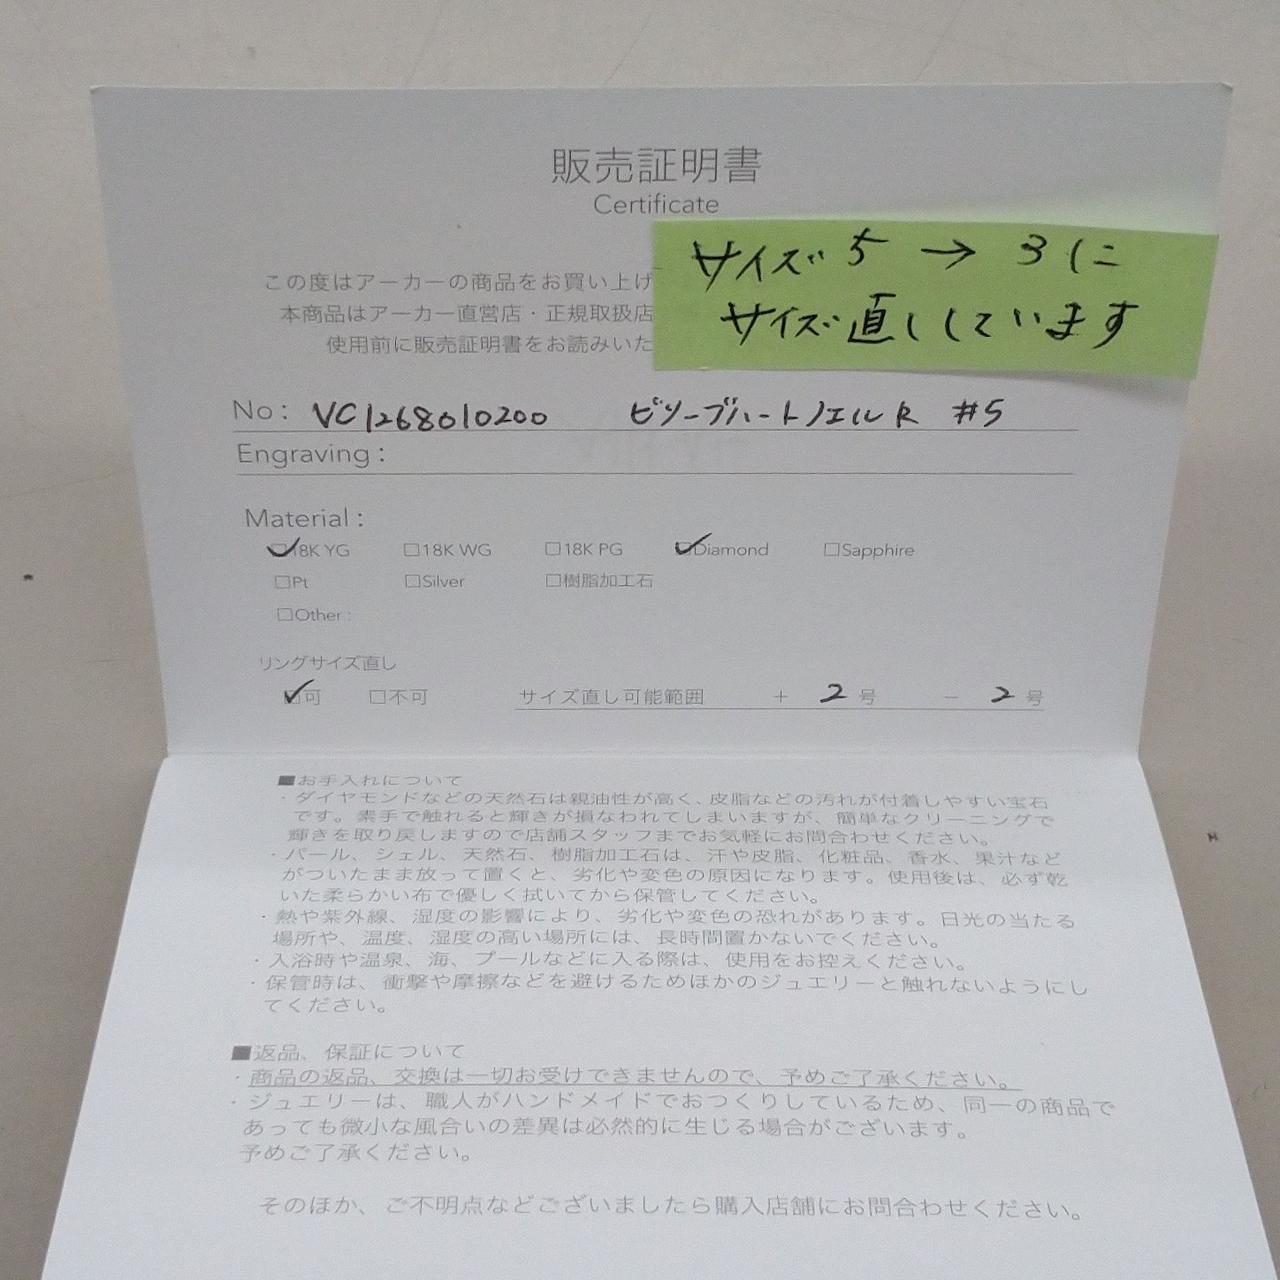 販売証明書
Certificate
サイズ 5 → 3に
サイズ直ししています
この度はアーカーの商品をお買い上げ
本商品はアーカー直営店・正規取扱店
使用前に販売証明書をお読みいた
No: VC1268010200 ビリーブハートノエルR #5
Engraving:
Material:
18K YG □18K WG □18K PG Diamond □Sapphire
□Pt □Silver □樹脂加工石
□Other:
リングサイズ直し
可 □不可 サイズ直し可能範囲 + 2 号 - 2 号
■お手入れについて
・ダイヤモンドなどの天然石は親油性が高く、皮脂などの汚れが付着しやすい宝石
です。素手で触れると輝きが損なわれてしまいますが、簡単なクリーニングで
輝きを取り戻しますので店舗スタッフまでお気軽にお問合わせください。
・パール、シェル、天然石、樹脂加工石は、汗や皮脂、化粧品、香水、果汁など
がついたまま放って置くと、劣化や変色の原因になります。使用後は、必ず乾
いた柔らかい布で優しく拭いてから保管してください。
・熱や紫外線、湿度の影響により、劣化や変色の恐れがあります。日光の当たる
場所や、温度、湿度の高い場所には、長時間置かないでください。
・入浴時や温泉、海、プールなどに入る際は、使用をお控えください。
・保管時は、衝撃や摩擦などを避けるためほかのジュエリーと触れないようにし
てください。
■返品、保証について
・商品の返品、交換は一切お受けできませんので、予めご了承ください。
・ジュエリーは、職人がハンドメイドでおつくりしているため、同一の商品で
あっても微小な風合いの差異は必然的に生じる場合がございます。
予めご了承ください。
そのほか、ご不明点などございましたら購入店舗にお問合わせください。